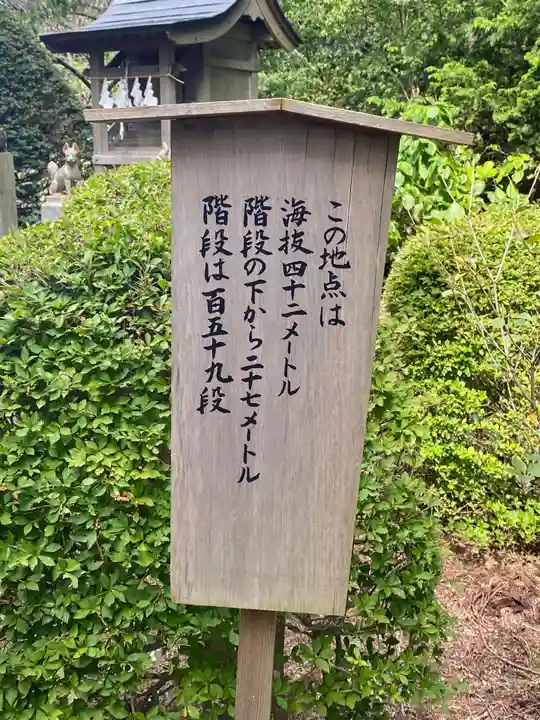 この地点は
海抜四十二メートル
階段の下から二十七メートル
階段は百五十九段